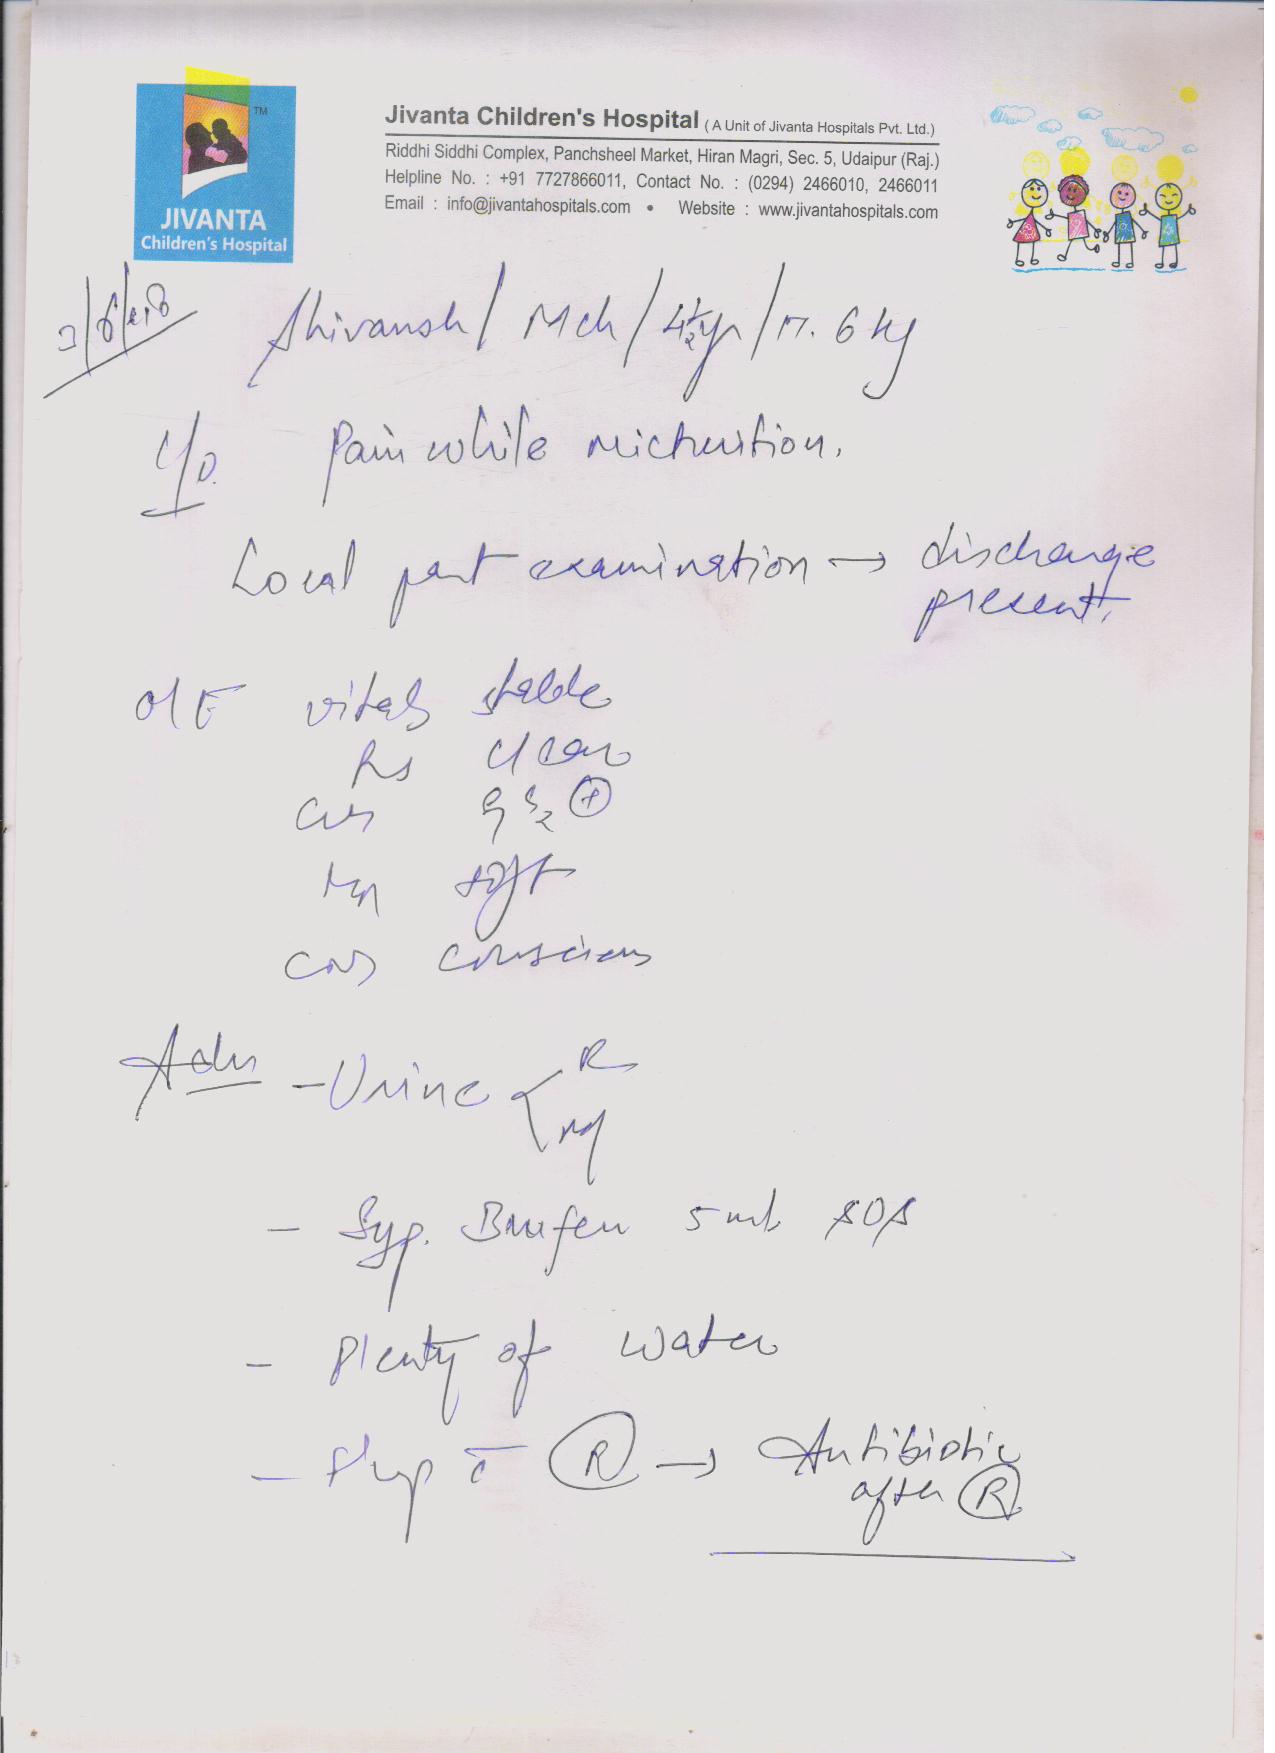 JIVANTA
Children's Hospital
TM
Jivanta Children's Hospital ( A Unit of Jivanta Hospitals Pvt. Ltd.)
Riddhi Siddhi Complex, Panchsheel Market, Hiran Magri, Sec. 5, Udaipur (Raj.)
Helpline No. : +91 7727866011, Contact No. : (0294) 2466010, 2466011
Email : info@jivantahospitals.com • Website : www.jivantahospitals.com
Shivansh / Mch / 4½yr / 17.6 kg
C/o Pain while micturition.
Local part examination → discharge
present.
O/E vitals stable
Rs clear
CVS S1 S2 +
soft
CNS conscious
Adv - Urine R
- Syp. Brufen 5 ml SOS
- Plenty of water
- F/up c̄ R → Antibiotic
after R